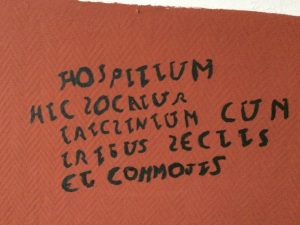 HOSPITIUM
HIC LOCATUR
TRICLINIUM CUM
TRIBUS LECTIS
ET COMMODIS